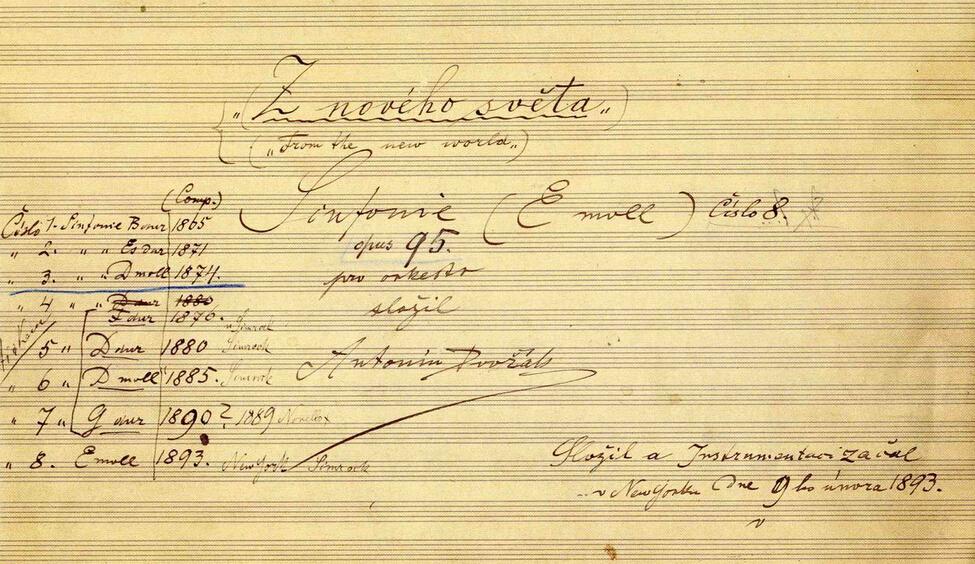 „Z nového světa„
(„From the new world„)
Sinfonie (E moll) Číslo 8.
opus 95.
pro orkestr
složil
Antonín Dvořák
(Comp.)
Číslo 1. Sinfonie B dur 1865
„ 2. „ Es dur 1871
„ 3. „ „ D moll 1874.
„ 4 „ „ D dur 1880
F dur 1876. Simrock
„ 5 „ D dur 1880 Simrock
„ 6 „ D moll 1885. Simrock
„ 7 „ G dur 1890? 1889 Novello
„ 8. E moll 1893. New York Simrock
Složil a Instrumentaci začal
v New Yorku dne 9ho února 1893.